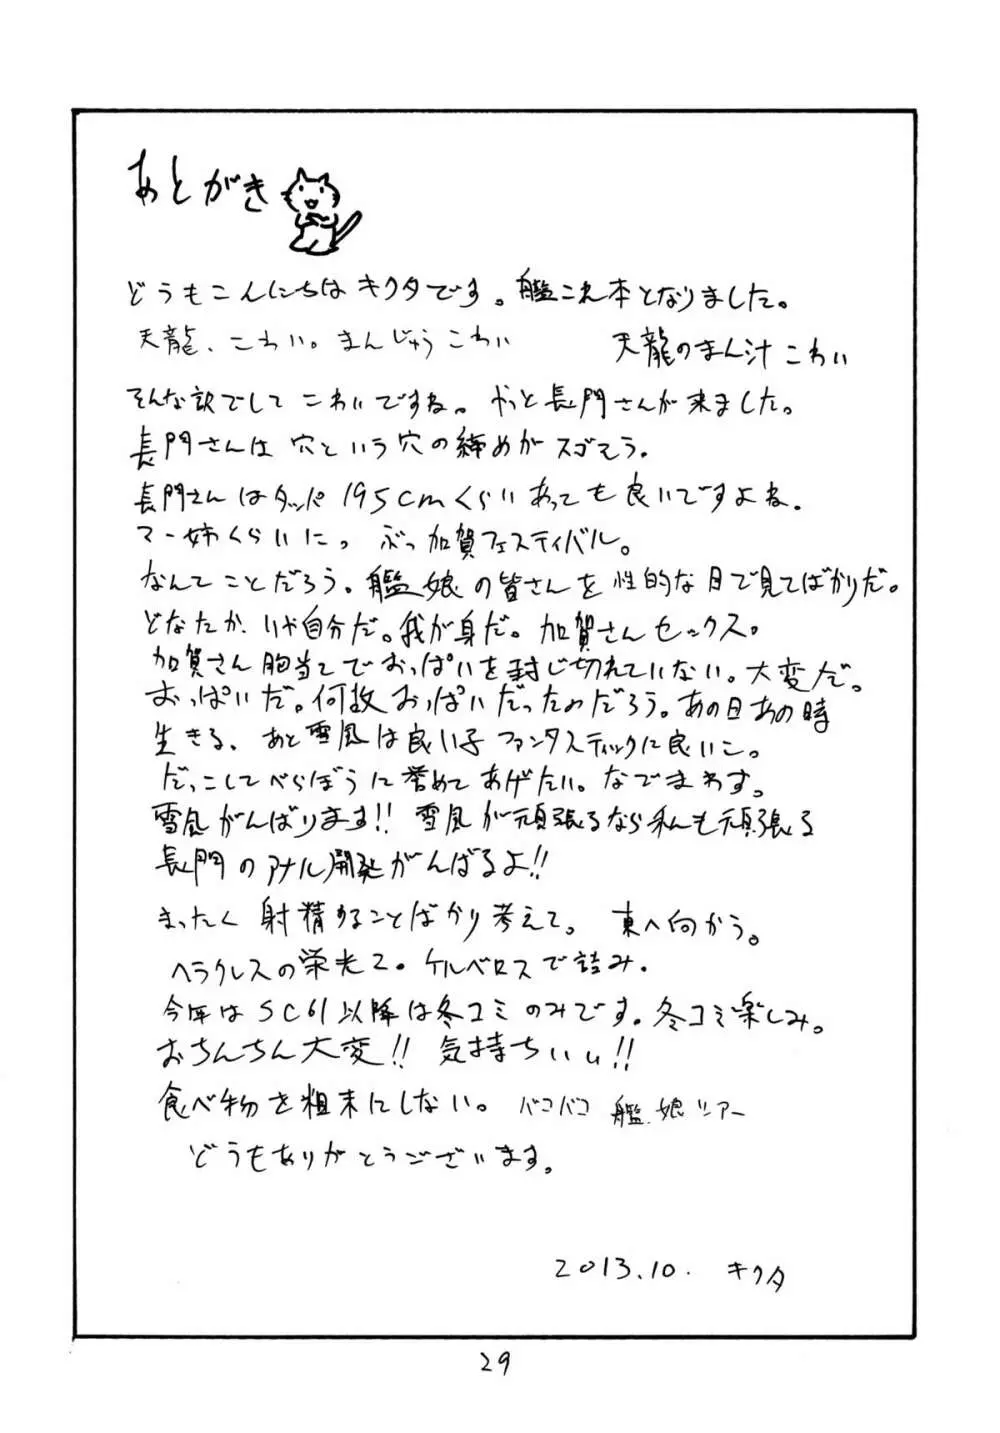 あとがき
どうもこんにちはキクタです。艦これ本となりました。
天龍、こわい。まんじゅうこわい 天龍のまん汁こわい
そんな訳でしてこわいですね。やっと長門さんが来ました。
長門さんは穴という穴の締めがスゴそう。
長門さんはタッパ195cmくらいあっても良いですよね。
マー姉くらいに。ぶっ加賀フェスティバル。
なんてことだろう。艦娘の皆さんを性的な目で見てばかりだ。
どなたか、いや自分だ。我が身だ。加賀さんセックス。
加賀さん胸当てでおっぱいを封じ切れていない。大変だ。
おっぱいだ。何故おっぱいだったのだろう。あの日あの時
生きる、あと雪風は良い子ファンタスティックに良いこ。
だっこしてべらぼうに誉めてあげたい。なでまわす。
雪風がんばります!!雪風が頑張るなら私も頑張る
長門のアナル開発がんばるよ!!
まったく射精することばかり考えて。東へ向かう。
ヘラクレスの栄光2。ケルベロスで詰み。
今年はSC61以降は冬コミのみです。冬コミ楽しみ。
おちんちん大変!!気持ちいい!!
食べ物を粗末にしない。バコバコ艦娘ツアー
どうもありがとうございます。
2013.10. キクタ
29